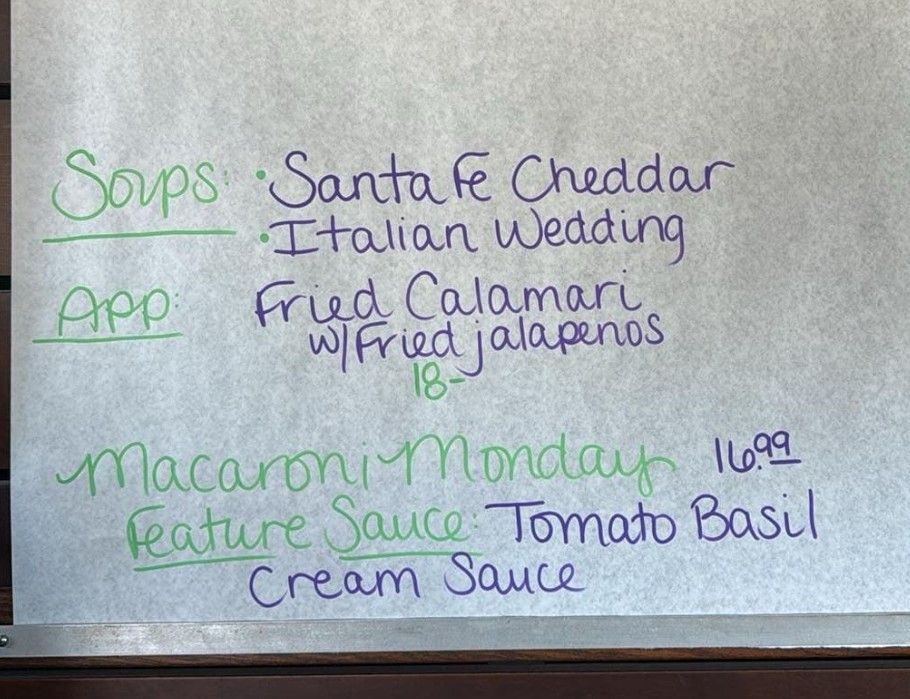 Soups: • Santa Fe Cheddar
• Italian Wedding
App: Fried Calamari
w/Fried jalapenos
18-
Macaroni Monday 16.99
Feature Sauce: Tomato Basil
Cream Sauce